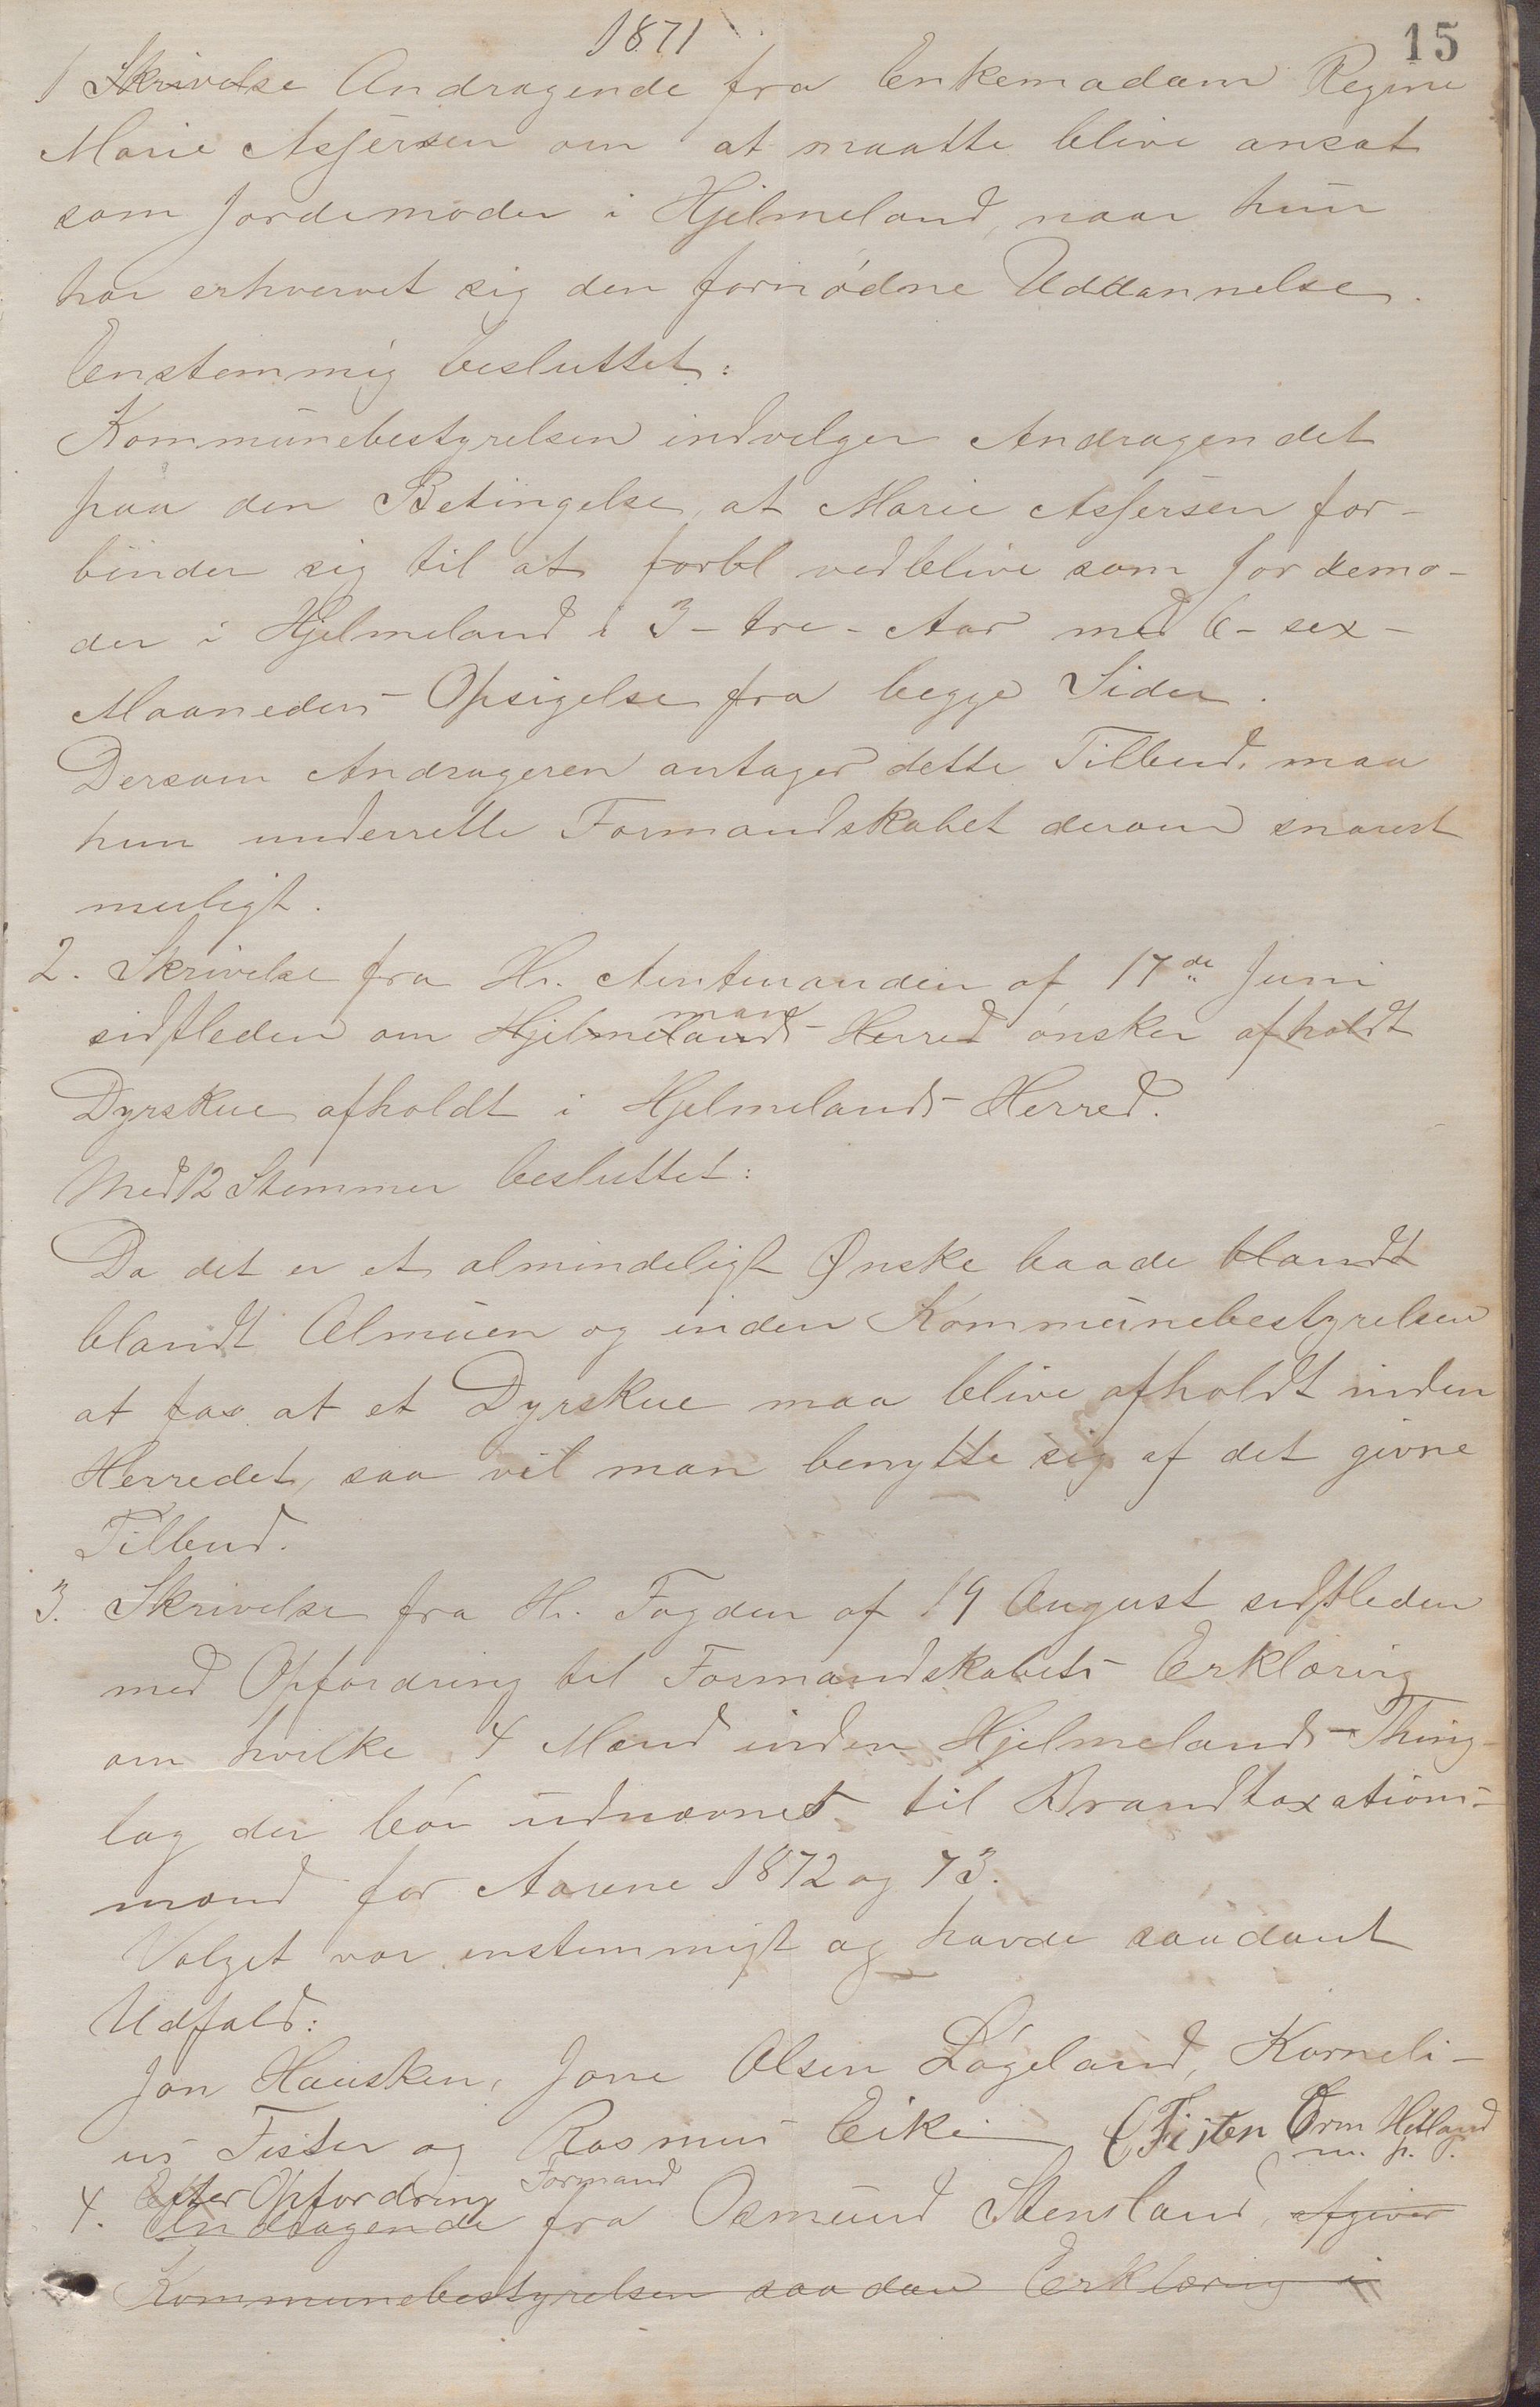 1871
15
1 Skrivelse Andragende fra Enkemadam Regine
Marie Asserson om at maatte blive ansat
som Jordemoder i Hjelmeland, naar hun
har erhvervet sig den fornødne Uddannelse.
Enstemmig besluttet:
Kommunebestyrelsen indvelger Andragendet
paa den Betingelse, at Marie Assersen for-
binder sig til at forbl vedblive som Jordemo-
der i Hjelmeland i 3 - tre - Aar med 6 - sex -
Maaneders Opsigelse fra begge Sider.
Dersom Andrageren antager dette Tilbud, maa
hun underrette Formandskabet derom snarest
muligt.
2. Skrivelse fra Hr. Amtmanden af 17de Juni
sidstleden om Hjelmelands Herred man ønsker afholdt
Dyrskue afholdt i Hjelmelands Herred.
Med 12 Stemmer besluttet:
Da det er et almindeligt Ønske baade blandt
blandt Almuen og inden Kommunebestyrelsen
at faa at et Dyrskue maa blive afholdt inden
Herredet, saa vil man benytte sig af det givne
Tilbud.
3. Skrivelse fra Hr. Fogden af 19 August sidstleden
med Opfordring til Formandskabets Erklæring
om hvilke 4 Mænd inden Hjelmelands Thing-
lag der bør udnævnes til Brandtaxations-
mænd for Aarene 1872 og 73.
Valget var enstemmigt og havde saadant
Udfald:
Jon Hausken, Jone Olsen Løgeland, Korneli-
us Fister og Rasmus Eike (Fisten Orm Hetland
m. p.
4. Efter Opfordring Formand
Andragende fra Osmund Stensland, afgiver
Kommunebestyrelsen saadan Erklæring i